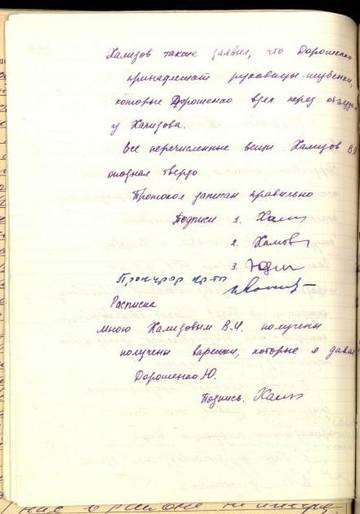 Хализов также заявил, что Дорошенко
принадлежат рукавицы-шубенки,
которые Дорошенко взял перед
у Хализова.
Все перечисленные вещи Хализов В.И
опознал твердо
Протокол записан правильно
Подписи 1. Хализ
2.
3. Юдин
Прокурор кр-та
Расписка
Мною Хализовым В.И. получены
получены варежки, которые я давал
Дорошенко Ю.
Подпись. Хализ